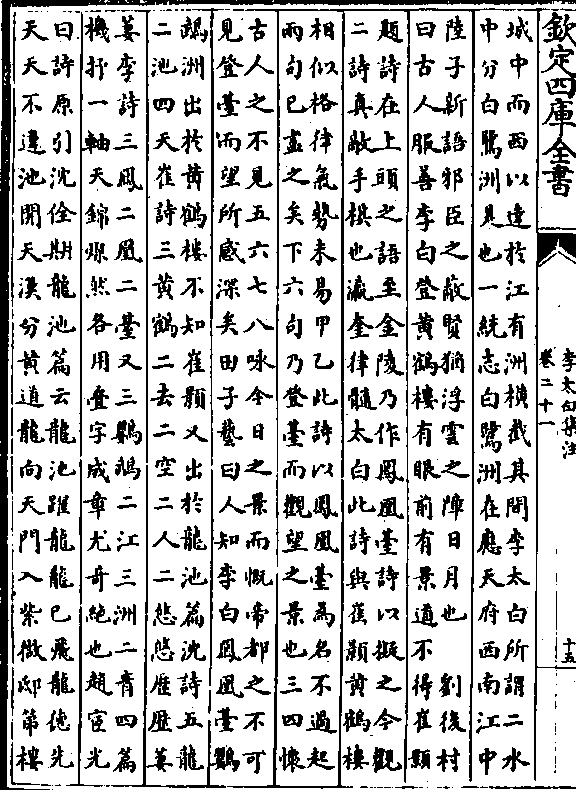 欽定四庫全書
李太白集注
卷二十一
十五
城中而西以達於江有洲橫截其間李太白所謂二水
中分白鷺洲是也一統志白鷺洲在應天府西南江中
陸子新語邪臣之蔽賢猶浮雲之障日月也 劉後村
曰古人服善李白登黃鶴樓有眼前有景道不得崔顥
題詩在上頭之語至金陵乃作鳳凰臺詩以擬之今觀
二詩真敵手棋也瀛奎律髓太白此詩與崔顥黃鶴樓
相似格律氣勢未易甲乙此詩以鳳凰臺為名不過起
兩句已盡之矣下六句乃登臺而觀望之景也三四懷
古人之不見五六七八咏今日之景而慨帝都之不可
見登臺而望所感深矣田子藝曰人知李白鳳凰臺鸚
鵡洲出於黃鶴樓不知崔顥又出於龍池篇沈詩五龍
二池四天崔詩三黃鶴二去二空二人二悠悠歷歷萋
萋李詩三鳳二凰二臺又三鸚鵡二江三洲二青四篇
機抒一軸天錦燦然各用疊字成章尤奇絶也趙宧光
曰詩原引沈佺期龍池篇云龍池躍龍龍已飛龍德先
天天不違池開天漢分黃道龍向天門入紫微邸第樓